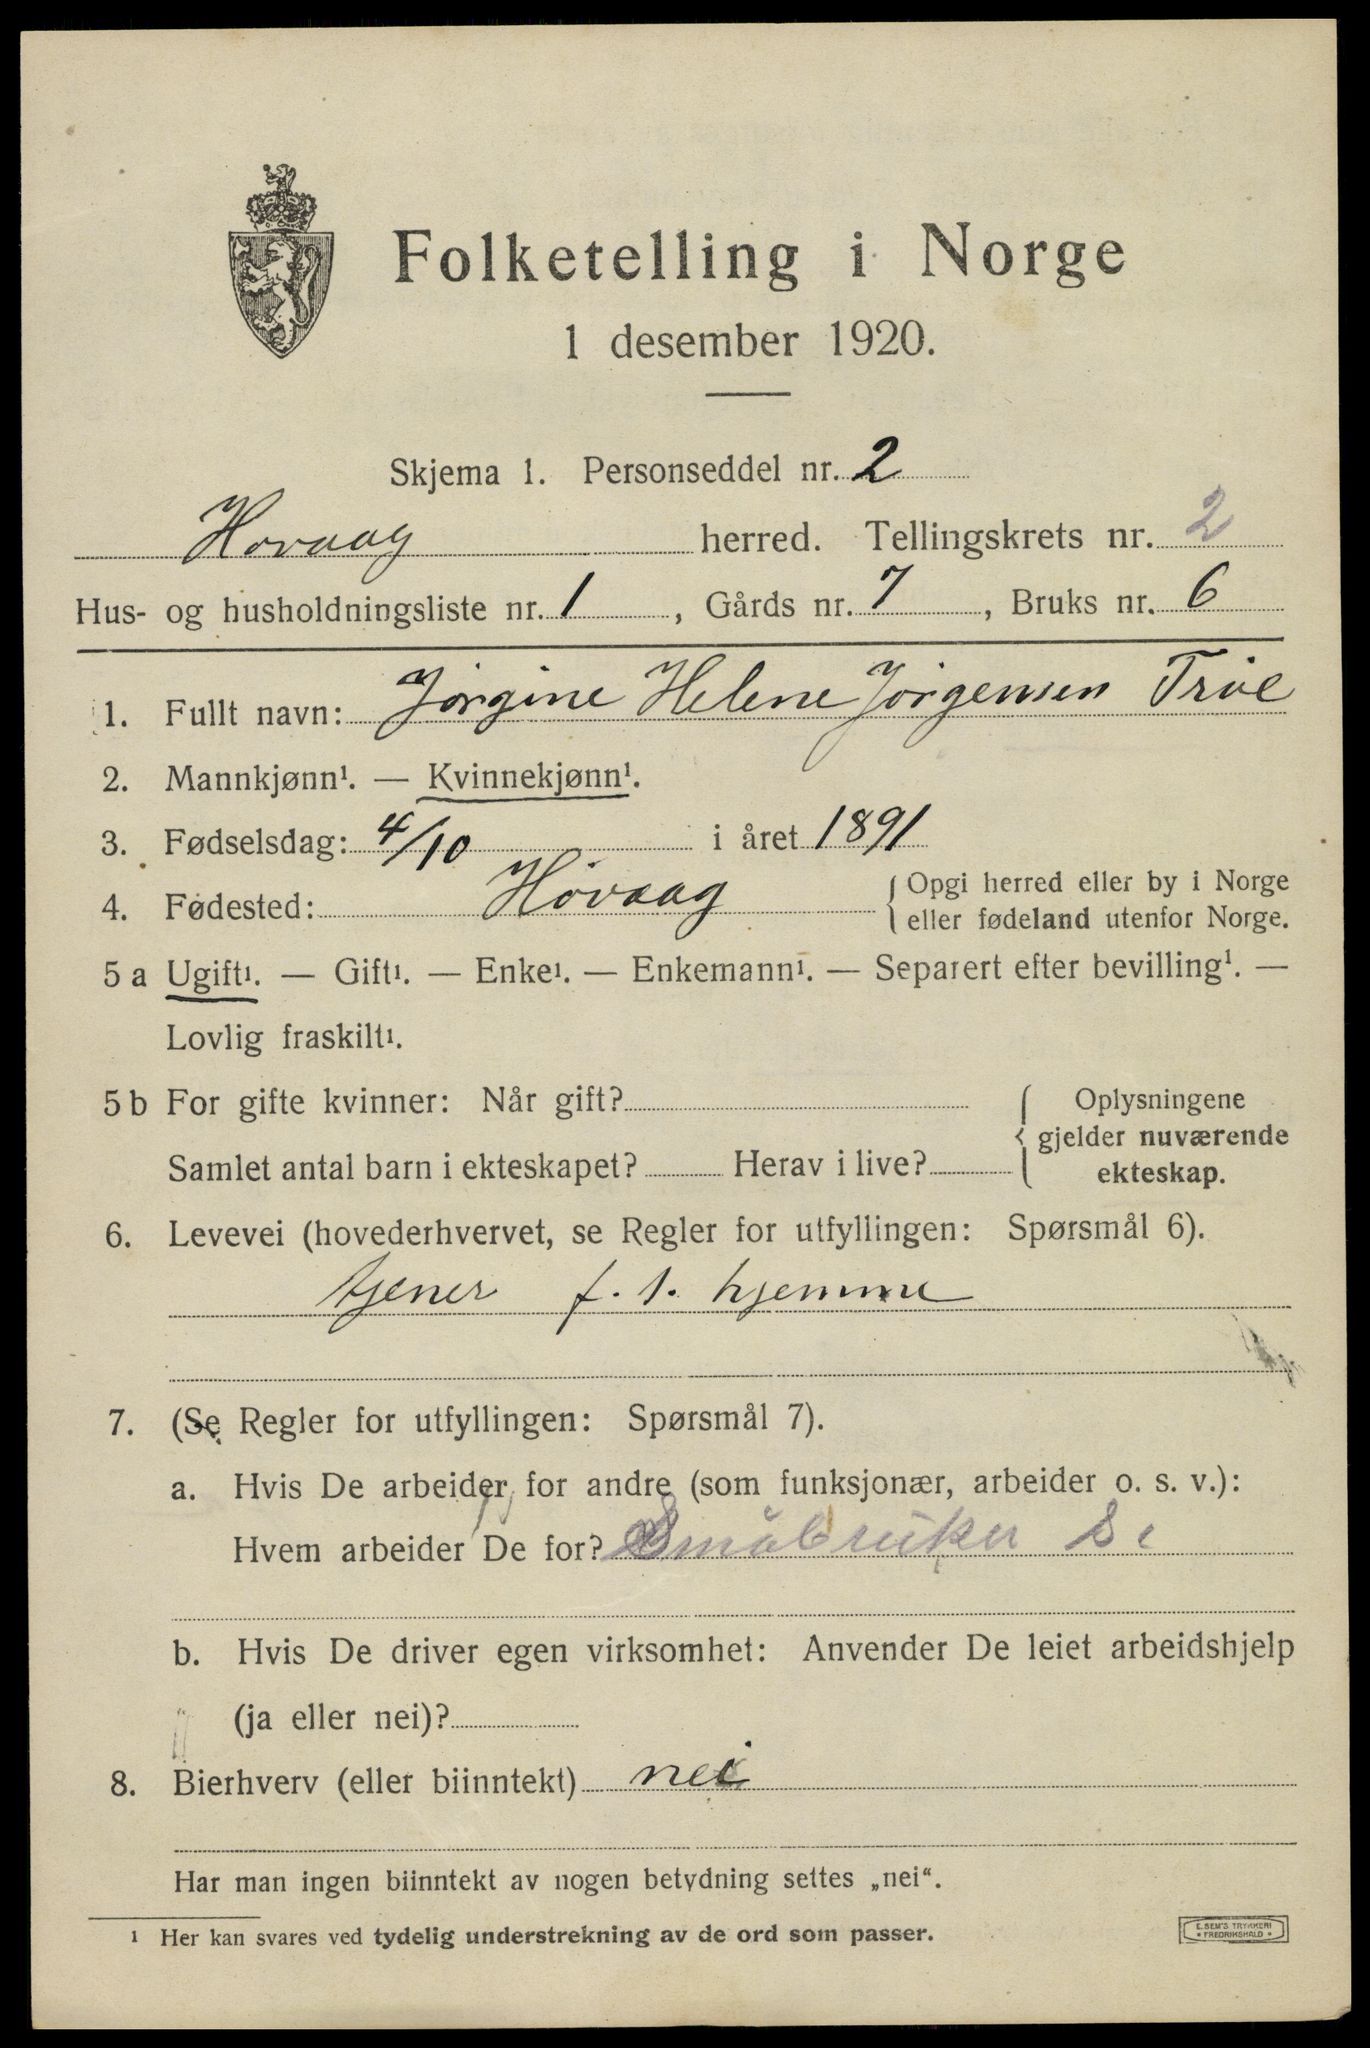 Folketelling i Norge
1 desember 1920.
Skjema 1. Personseddel nr. 2
Hovaag herred. Tellingskrets nr. 2
Hus- og husholdningsliste nr. 1, Gårds nr. 7, Bruks nr. 6
1. Fullt navn: Jørgine Helene Jørgensen
2. Mannkjønn¹. — Kvinnekjønn¹.
3. Fødselsdag: 4/10 i året 1891
4. Fødested: Høvaag { Opgi herred eller by i Norge
eller fødeland utenfor Norge.
5 a Ugift¹. — Gift¹. — Enke¹. — Enkemann¹. — Separert efter bevilling¹. —
Lovlig fraskilt¹.
5 b For gifte kvinner: Når gift?
Samlet antal barn i ekteskapet? Herav i live?
{ Oplysningene
gjelder nuværende
ekteskap.
6. Levevei (hovederhvervet, se Regler for utfyllingen: Spørsmål 6).
tjener f. 1. hjemme
7. (Se Regler for utfyllingen: Spørsmål 7).
a. Hvis De arbeider for andre (som funksjonær, arbeider o. s. v.):
Hvem arbeider De for? Småbruker
b. Hvis De driver egen virksomhet: Anvender De leiet arbeidshjelp
(ja eller nei)?
8. Bierhverv (eller biinntekt) nei
Har man ingen biinntekt av nogen betydning settes „nei“.
¹ Her kan svares ved tydelig understrekning av de ord som passer.
E. SEM'S TRYKKERI
* FREDRIKSHALD *